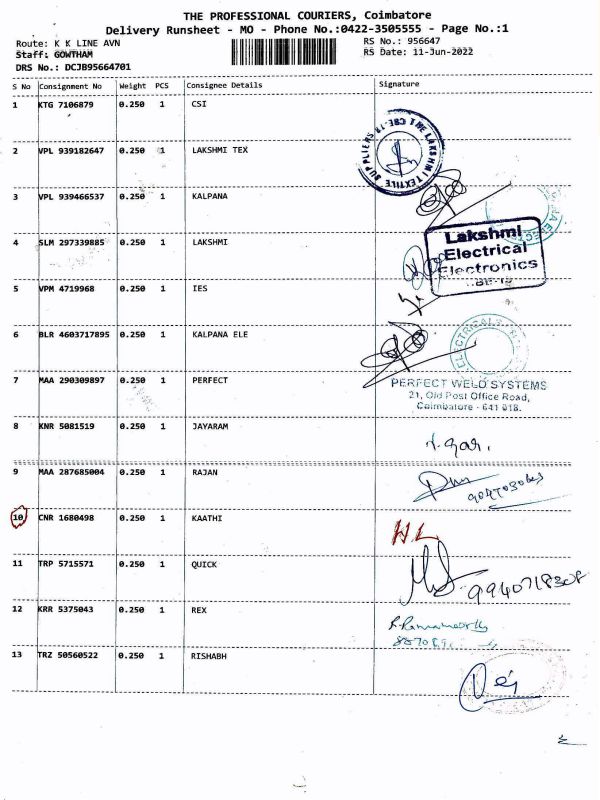 THE PROFESSIONAL COURIERS, Coimbatore
Delivery Runsheet - MO - Phone No.:0422-3505555 - Page No.:1
Route: K K LINE AVN
RS No.: 956647
Staff: GOWTHAM
RS Date: 11-Jun-2022
DRS No.: DCJB95664701
S No Consignment No Weight PCS Consignee Details Signature
1 KTG 7106879 0.250 1 CSI
2 VPL 939182647 0.250 1 LAKSHMI TEX
THE LAKSHMI TEXTILE SUPPLIERS CBE-18
3 VPL 939466537 0.250 1 KALPANA
4 SLM 297339885 0.250 1 LAKSHMI
Lakshmi
Electrical
Electronics
5 VPM 4719968 0.250 1 IES
6 BLR 4603717895 0.250 1 KALPANA ELE
ELECTRICALS
7 MAA 290309897 0.250 1 PERFECT
PERFECT WELD SYSTEMS
21, Old Post Office Road,
Coimbatore - 641 018.
8 KNR 5081519 0.250 1 JAYARAM
9 MAA 287685004 0.250 1 RAJAN
10 CNR 1680498 0.250 1 KAATHI
HL
11 TRP 5715571 0.250 1 QUICK
9940718308
12 KRR 5375043 0.250 1 REX
13 TRZ 50560522 0.250 1 RISHABH